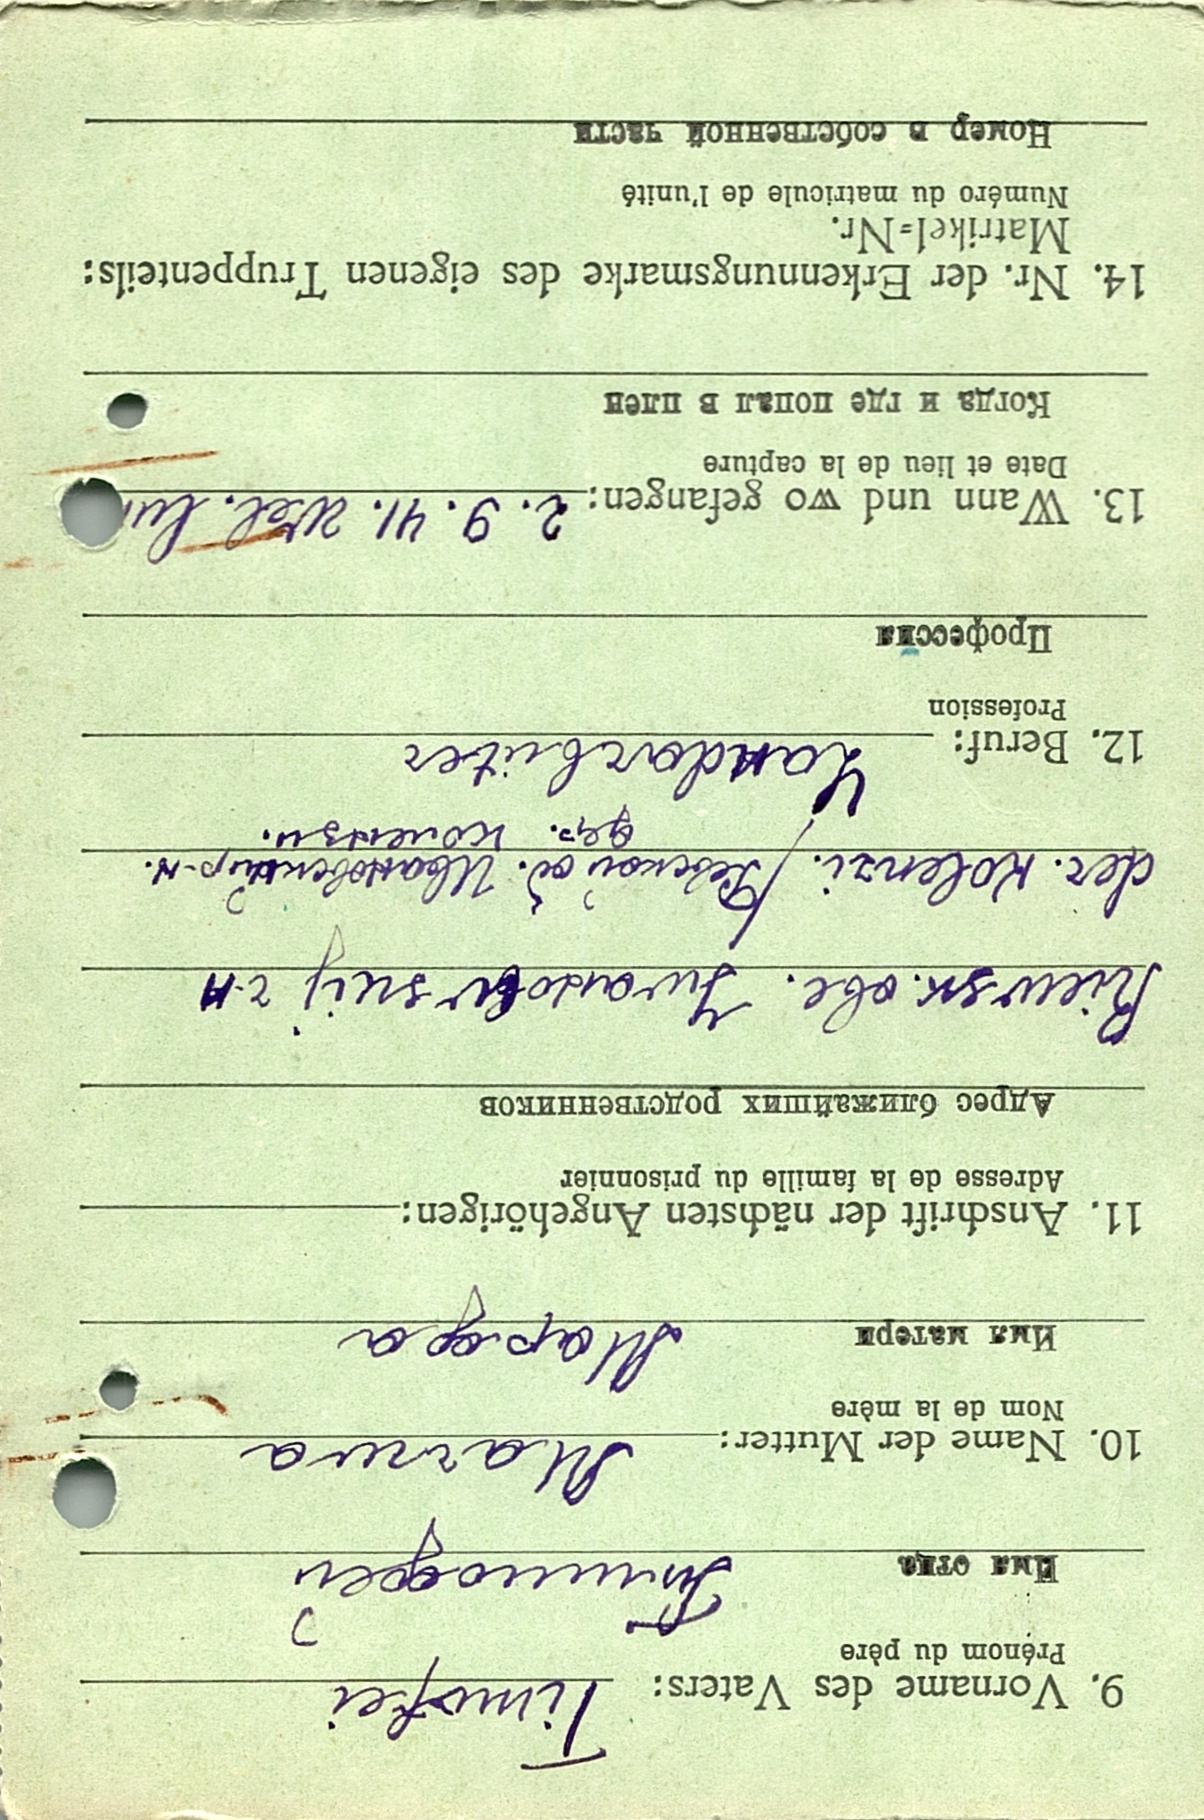 9. Vorname des Vaters: Timofei
Prénom du père
Имя отца Тимофей
10. Name der Mutter: Marva
Nom de la mère
Имя матери Марфа
11. Anschrift der nächsten Angehörigen:
Adresse de la famille du prisonnier
Адрес ближайших родственников
Kiewsk. obl.
der. Kolenzi.
дер. Коленцы.
12. Beruf: Landarbeiter
Profession
Профессия
13. Wann und wo gefangen: 2. 9. 41.
Date et lieu de la capture
Когда и где попал в плен
14. Nr. der Erkennungsmarke des eigenen Truppenteils:
Matrikel=Nr.
Numéro du matricule de l'unité
Номер в собственной части